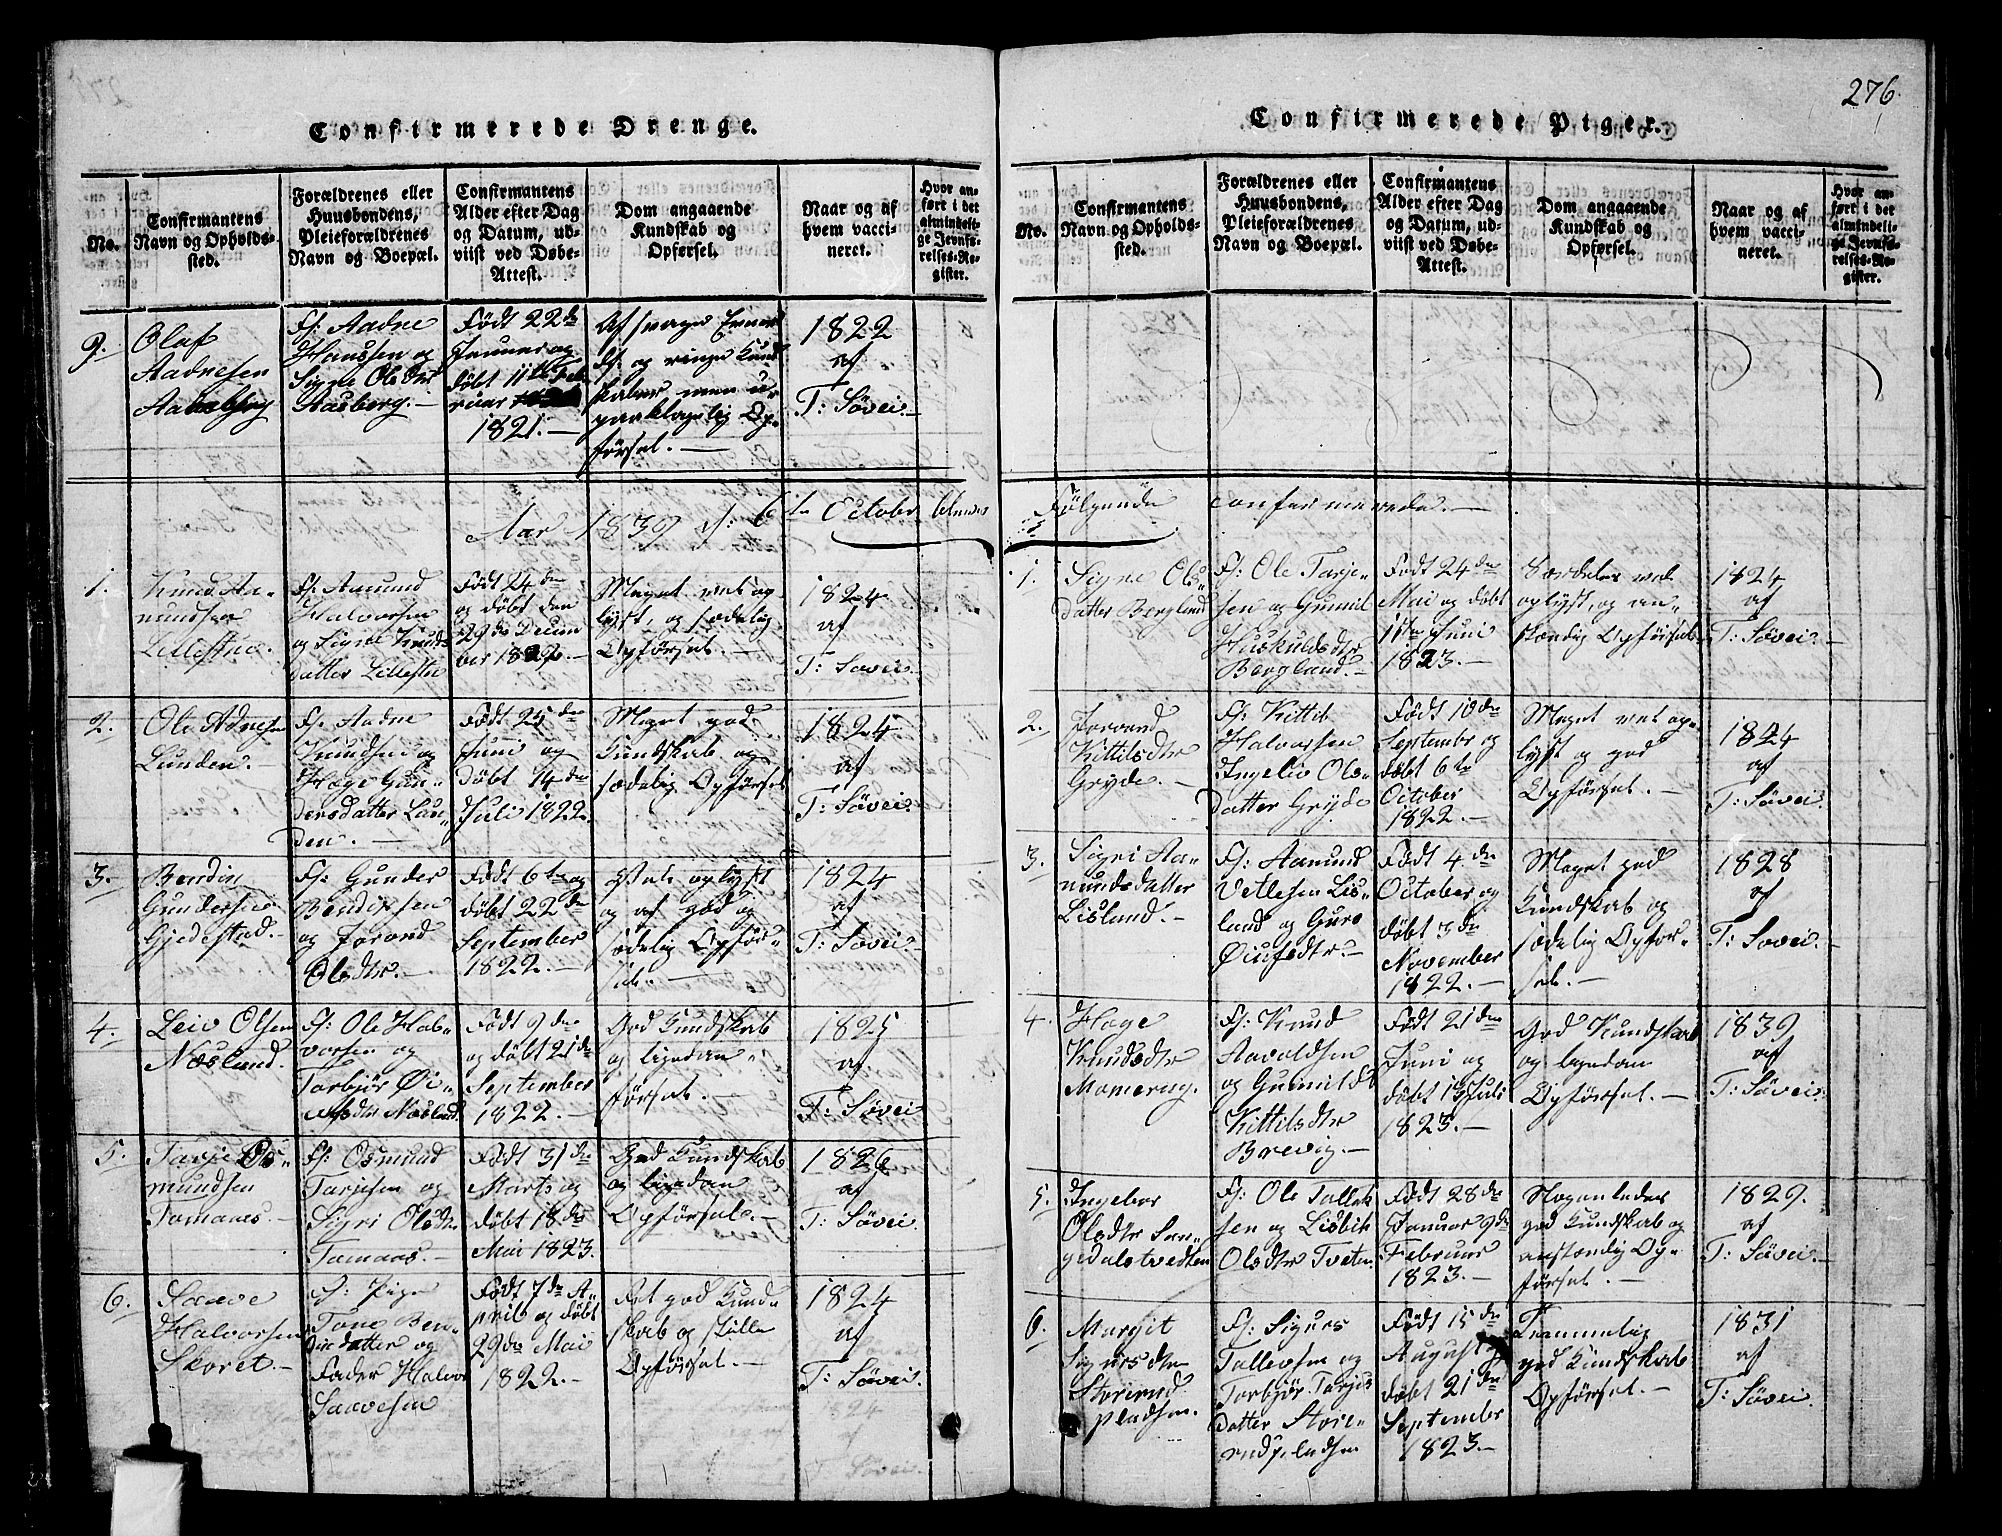 276.
Confirmerede Drenge.
No.
Confirmantens
Navn og Opholds-
sted.
Forældrenes eller
Huusbondens,
Pleieforældrenes
Navn og Boepæl.
Confirmantens
Alder efter Dag
og Datum, ud-
viist ved Døbe-
Attest.
Dom angaaende
Kundskab og
Opførsel.
Naar og af
hvem vacci-
neret.
Hvor an-
ført i det
almindeli-
ge Jevnfø-
relses-Re-
gister.
9.
Olaf
Aadnesen
Aasberg
F: Aadne
Hanssen og
Signe Ols Dtr
Aasberg.-
Født 22de
Januar og
døbt 11te Feb
ruar
1821.-
Af svage Evner
og ringe Kund
skaber men u-
paaklagelig Op-
førsel.-
1822
af
T: Søvei.-
Aar 1839 d: 6te Octobr bleve
1.
Knud Aa-
mundsen
Lillestue.
F: Aamund
Halvorsen
og Signe Knuds
datter Lillestue
Født 24de
og døbt den
29de Decem
ber 1822.-
Meget vel op
lyst, og sædelig
Opførsel.-
1824
af
T: Søvei.
2.
Ole Adnesen
Lunden.-
F: Aadne
Knudsen og
Hæge Gun-
dersdatter Lun-
den.-
Født 25de
Juni og
døbt 14de
Juli 1822.
Meget god
Kundskab og
sædelig Opførsel
1824.
af
T: Søvei.
3.
Bendix
Gundersen
Gjedestad.-
F: Gunder
Bendixsen
og Jorond
Olsdtr.-
Født 6te og
døbt 22de
September
1822.-
Vel oplyst
og af god og
sædelig Opfør-
sel.-
1824
af
T: Søvei
4.
Leiv Olsen
Næslund.
F: Ole Hal-
vorsen og
Torbjør Øi-
ufsdtr Næslund
Født 9de
og døbt 21de
September
1822.-
God Kundskab
og ligedan
førsel.-
1825
af
T: Søvei
5.
Tarje Os-
mundsen
Tamanes.-
F: Osmund
Tarjesen og
Sigri Olsdtr
Tamanes.-
Født 31de
Marts og
døbt 18de
Mai 1823.
God Kundskab
og ligedan
Opførsel.-
1826
af
T: Søvei
6.
Saave
Halvorsen
Skoret.-
F: Pige
Tone Ben-
dixdatter og
Fader Halvor
Saavesen
Født 7de A-
pril og døbt
29de Mai
1822.-
Ret god Kund
skab og stille
Opførsel.-
1824
af
T: Søvei.
Confirmerede Piger.
No.
Confirmantens
Navn og Opholds-
sted.
Forældrenes eller
Huusbondens,
Pleieforældrenes
Navn og Boepæl.
Confirmantens
Alder efter Dag
og Datum, ud-
viist ved Døbe-
Attest.
Dom angaaende
Kundskab og
Opførsel.
Naar og af
hvem vacci-
neret.
Hvor an-
ført i det
almindeli-
ge Jevnfø-
relses-Re-
gister.
Følgende confirmerede.-
1.
Signe Ols-
datter Berglund
F: Ole Tarje-
sen og Gunnil
Huskuldsdtr
Bergland.-
Født 24de
Mai og døbt
11te Juni
1823.-
Særdeles vel
oplyst, og an-
stændig Opførsel
1824
af
T: Søvei.-
2.
Jorond
Kittilsdtr
Gryde.-
F: Kittil
Halvorsen
Ingeliv Ols-
datter Gryde
Født 10de
Septembr og
døbt 6te
October
1822.-
Meget vel op-
lyst og god
Opførsel.-
1824
af
T: Søvei.
3.
Sigri Aa-
mundsdatter
Lislund.-
F: Aamund
Vetlesen Lis-
lund og Guro
Øiufsdtr.-
Født 4de
October og
døbt 3de
November
1822.-
Meget god
Kundskab og
sædelig Opfør-
sel.-
1828
af
T: Søvei.-
4.
Hæge
Knudsdtr
Momerag.
F: Knud
Aavoldsen
og Gunnild
Kittilsdtr
Brevig.-
Født 21de
Juni og
døbt 13 Juli
1823.-
God Kundskab
og ligedan
Opførsel.-
1839
af
T: Søvei.
5.
Ingebor
Olsdtr San-
gedalstvedten
F: Ole Tallek
sen og Lisbik
Olsdtr Tveten
Født 28de
Januar 9de
Februar
1823.-
Nogenledes
god Kundskab og
anstændig Op-
førsel.-
1829.
af
T: Søvei.-
6.
Margit
Sigursdtr
Storrend
pladsen.
F: Sigurs
Tallevsen og
Torbjør Tarjes
datter Store-
rudspladsen
Født 15de
August og
døbt 21de
Septembr
1823.-
Temmelig
god Kundskab
Opførsel.-
1831
af
T: Søvei.